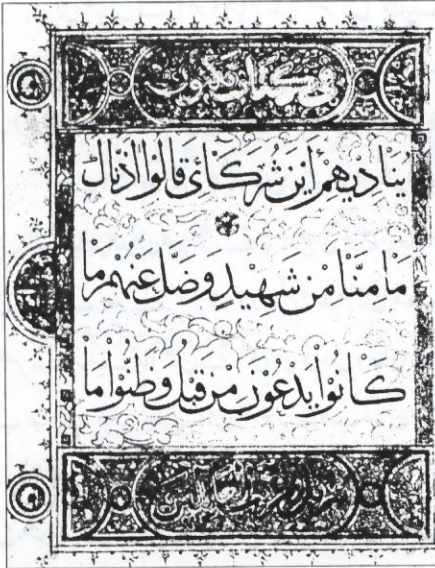 في كتاب مكنون
يُنَادِيهِمْ أَيْنَ شُرَكَائِي قَالُوا اٰذَنَّاكَ
مَا مِنَّا مِنْ شَهِيْدٍ وَضَلَّ عَنْهُمْ مَا
كَانُوْا يَدْعُوْنَ مِنْ قَبْلُ وَظَنُّوْا مَا
تنزيل من رب العالمين